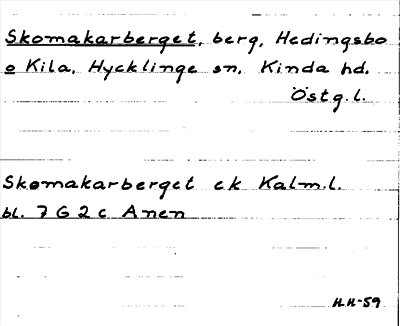 Skomakarberget, berg, Hedingsbo
o Kila, Hycklinge sn, Kinda hd.
Östg.l.
Skomakarberget ek Kalm.l.
bl. 7 G 2 c Anen
H.H-59